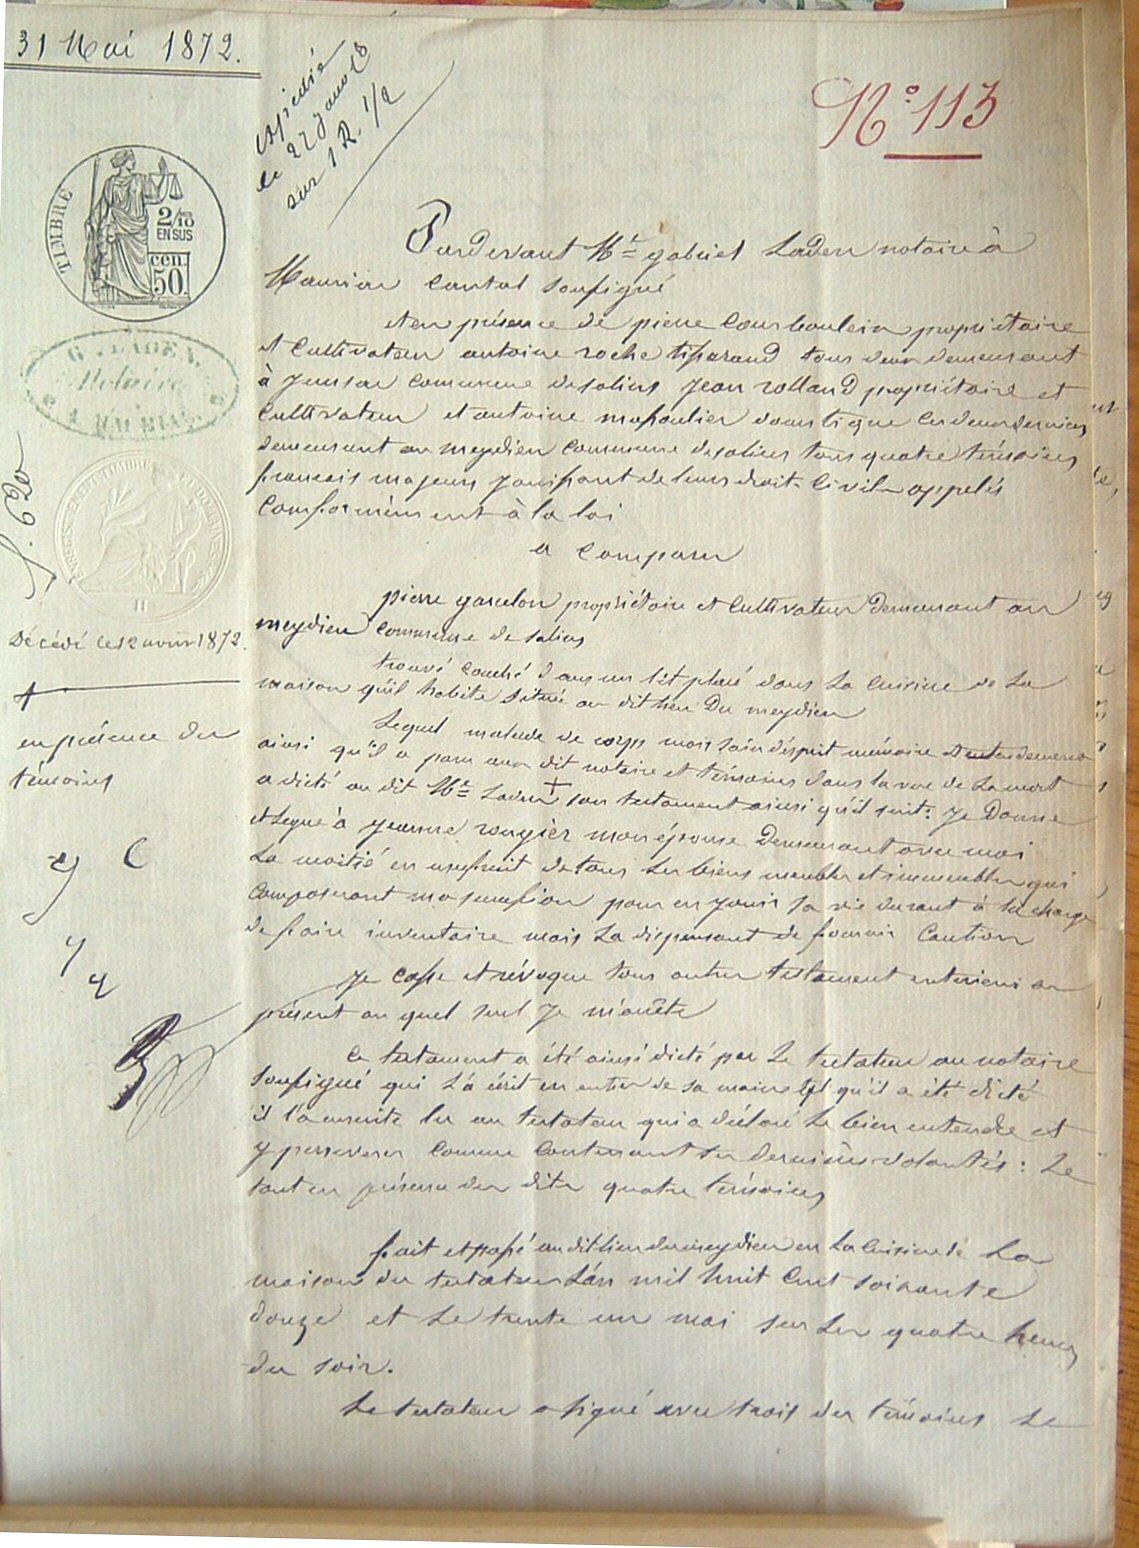 31 Mai 1872.
expédié
le 22 Janv 18
sur 1 R. 1/2
N° 113
TIMBRE
2/10
EN SUS
50
cen
G. LADEN
Notaire
A MAURIAC
Décédé le 12 1872.
en présence des
témoins
Pardevant Me gabriel Laden notaire à
Mauriac Cantal soussigné
et en présence de pierre Courboulein propriétaire
et Cultivateur antoine roche tisserand tous deux demeurant
à commune de salins Jean rolland propriétaire et
Cultivateur et antoine domestique ces deux derniers
demeurant au meydieu commune de salins tous quatre témoins
francais majeurs jouissant de leurs droits Civils appelés
Conformément à la loi
a Comparu
pierre garcelon propriétaire et Cultivateur demeurant au
meydieu commune de salins
trouvé couché dans un lit placé dans la Cuisine de La
maison qu'il habite située au dit lieu Du meydieu
Lequel malade de corps mais sain d'esprit mémoire et entendement
ainsi qu'il a paru aux dit notaire et témoins dans la vue de La mort
a dicté au dit Me Laden + son testament ainsi qu'il suit: Je Donne
et Legue à Jeanne rougier mon épouse Demeurant avec moi
La moitié en usufruit de tous les biens meubles et immeubles qui
Composeront ma succession pour en jouir sa vie durant à la charge
de faire inventaire mais La dispensant de fournir Caution
Je Casse et révoque tous autres testament anterieur au
présent au quel seul Je m'arrête
Ce testament a été ainsi dicté par Le testateur au notaire
soussigné qui L'a écrit en entier de sa main tel qu'il a été dicté
il l'a ensuite lu au testateur qui a déclaré Le bien entendre et
y perseverer Comme Contenant ses dernières volontés: Le
tout en présence des dits quatre témoins
fait et passé au dit lieu du meydieu en La Cuisine de La
maison du testateur L'an mil huit Cent soixante
douze et Le trente un mai sur Les quatre heures
du soir.
Le testateur a signé avec trois des témoins Le